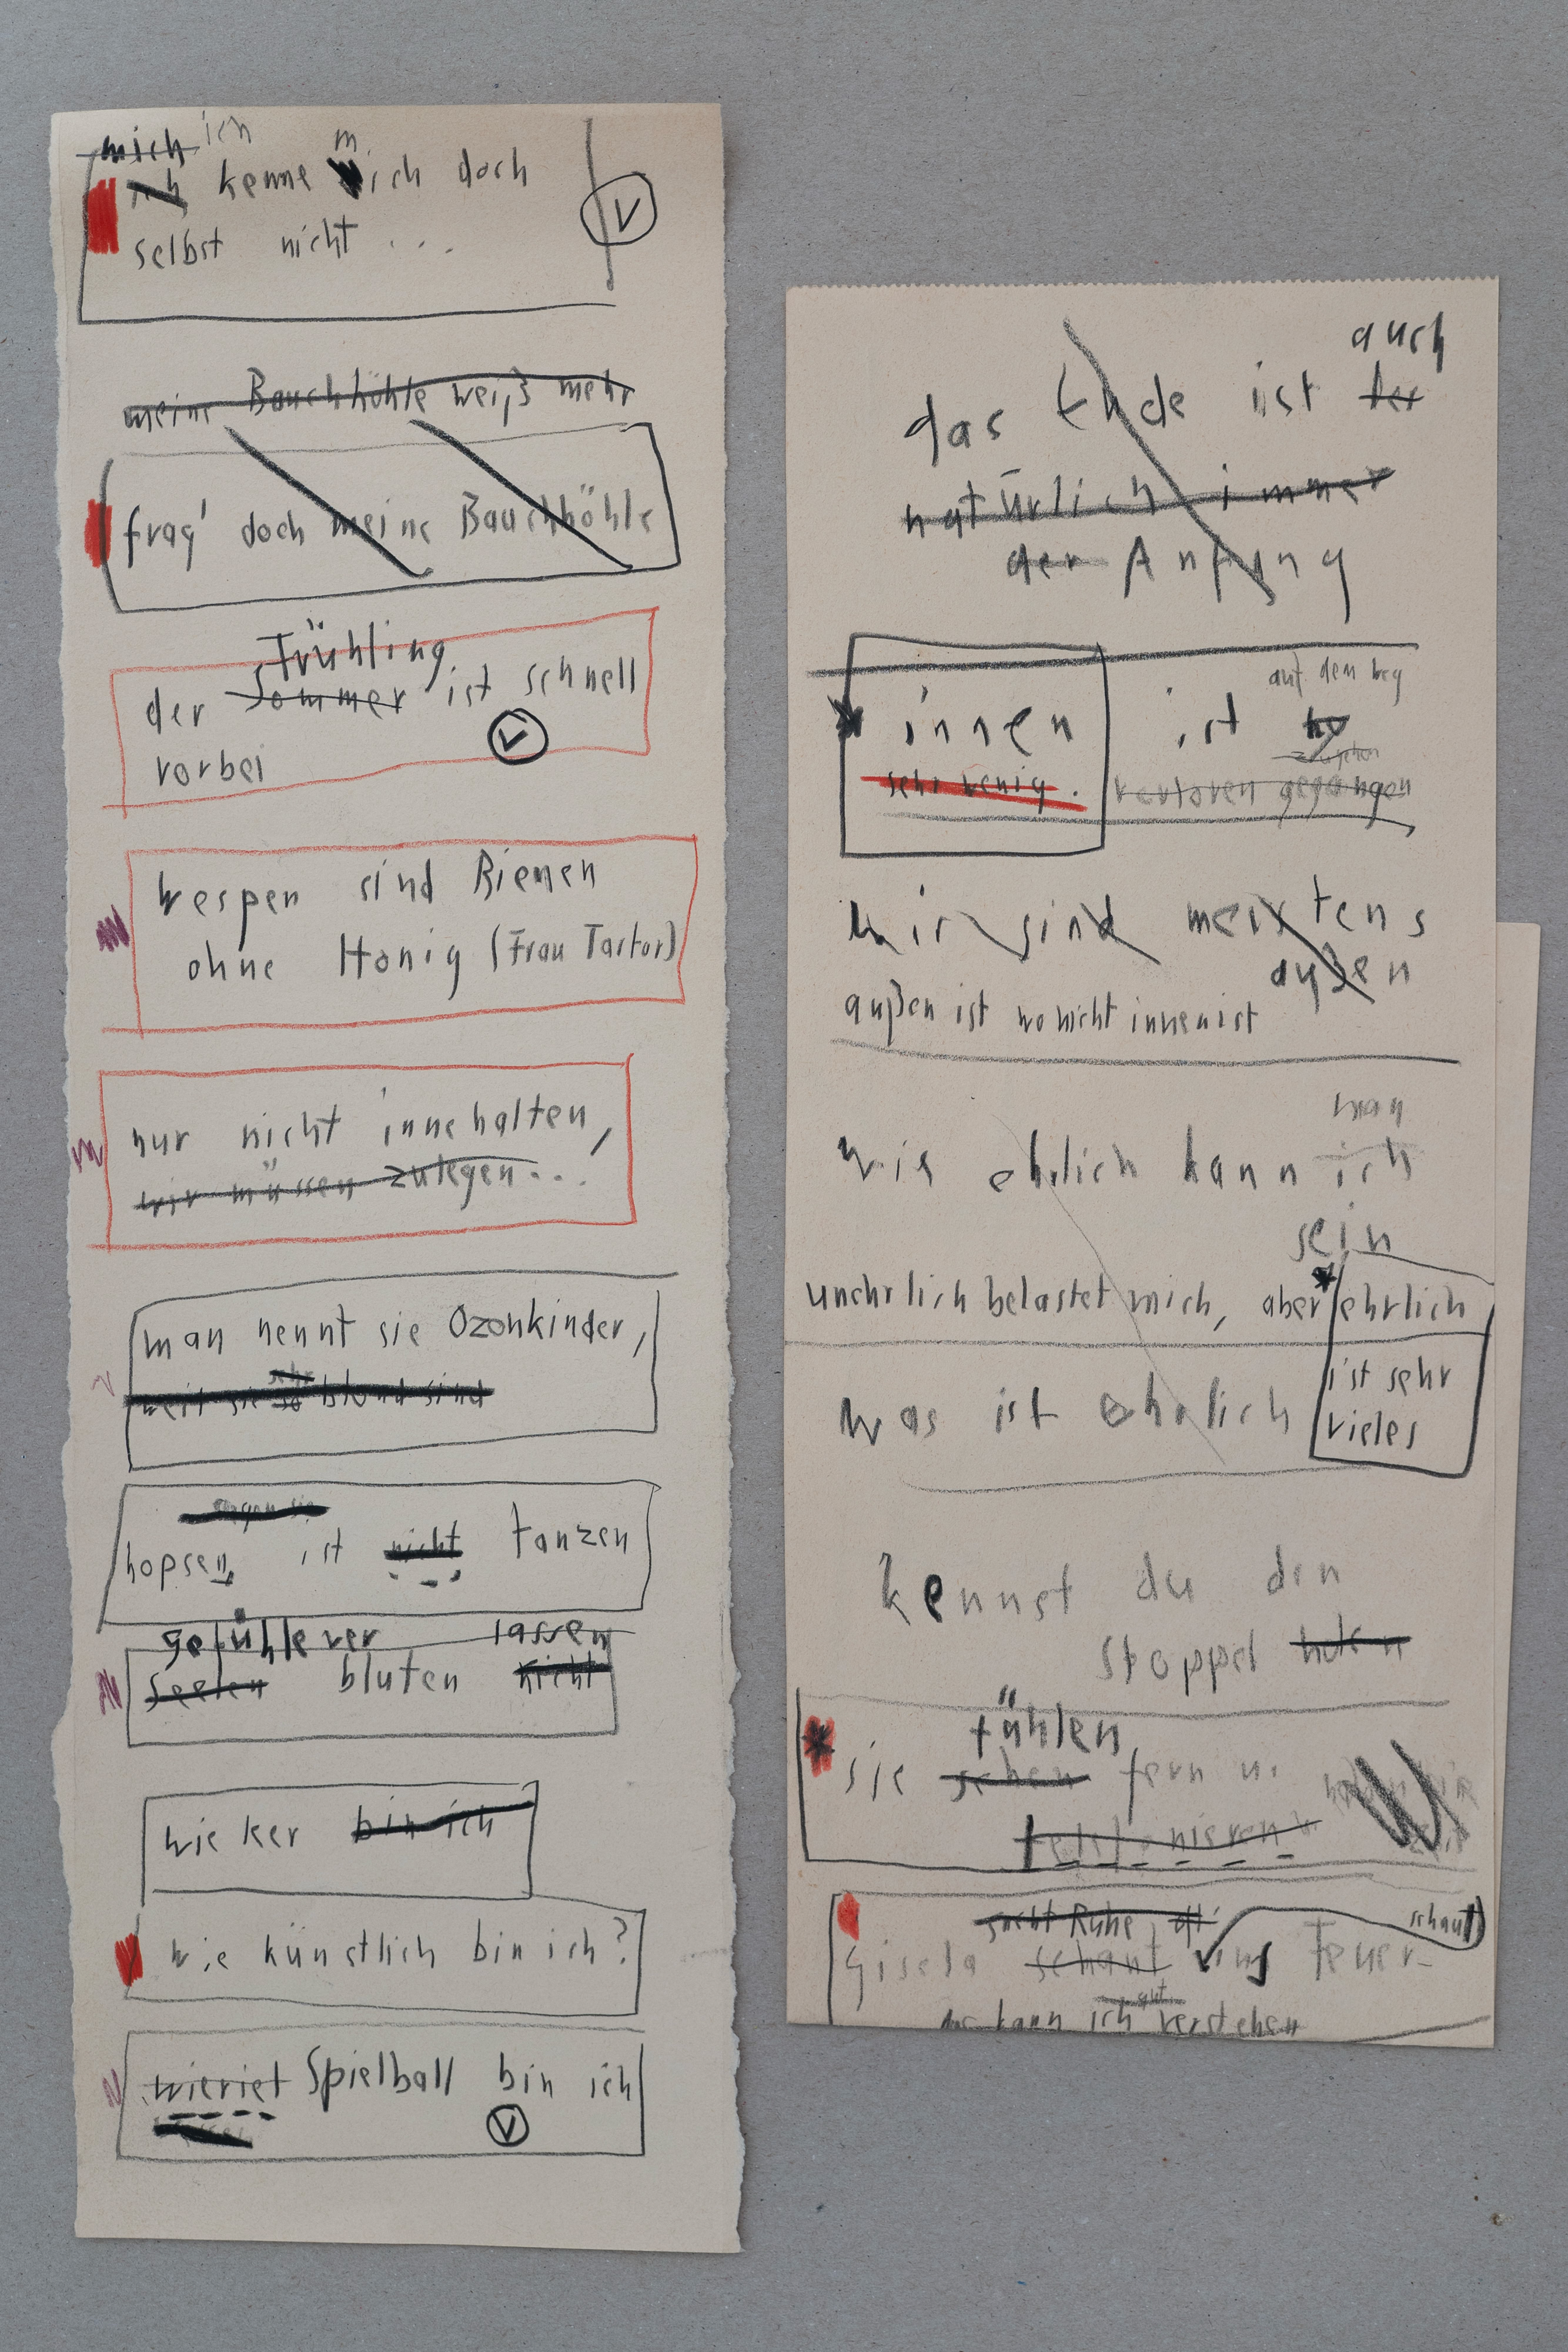 mich ich
ich kenne mich doch
selbst nicht ...
meine Bauchhöhle weiß mehr
frag' doch meine Bauchhöhle
Frühling
der Sommer ist schnell
vorbei
Wespen sind Bienen
ohne Honig (Frau Tartor)
nur nicht innehalten,
wir müssen zulegen...
man nennt sie Ozonkinder,
sehr
weil sie so blond sind
hopsen ist nicht tanzen
gefühle ver lassen
Seelen bluten nicht
wie ker bin ich
wie künstlich bin ich?
wieviel Spielball bin ich
auch
das Ende ist der
natürlich immer
der Anfang
auf dem weg
innen ist
sehr wenig. verloren gegangen
wir sind meistens
außen
außen ist wo nicht innen ist
man
wie ehrlich kann ich
sein
unehrlich belastet mich, aber ehrlich
ist sehr
was ist ehrlich
vieles
kennst du den
stoppel
fühlen
sie sehen fern u.
telefonieren
sucht Ruhe schaut
Gisela schaut ins Feuer
gut
das kann ich verstehen